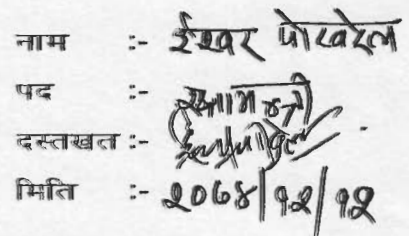 नाम :- ईश्वर पोखरेल
पद :-
दस्तखत :-
मिति :- २०६४|१२|१२